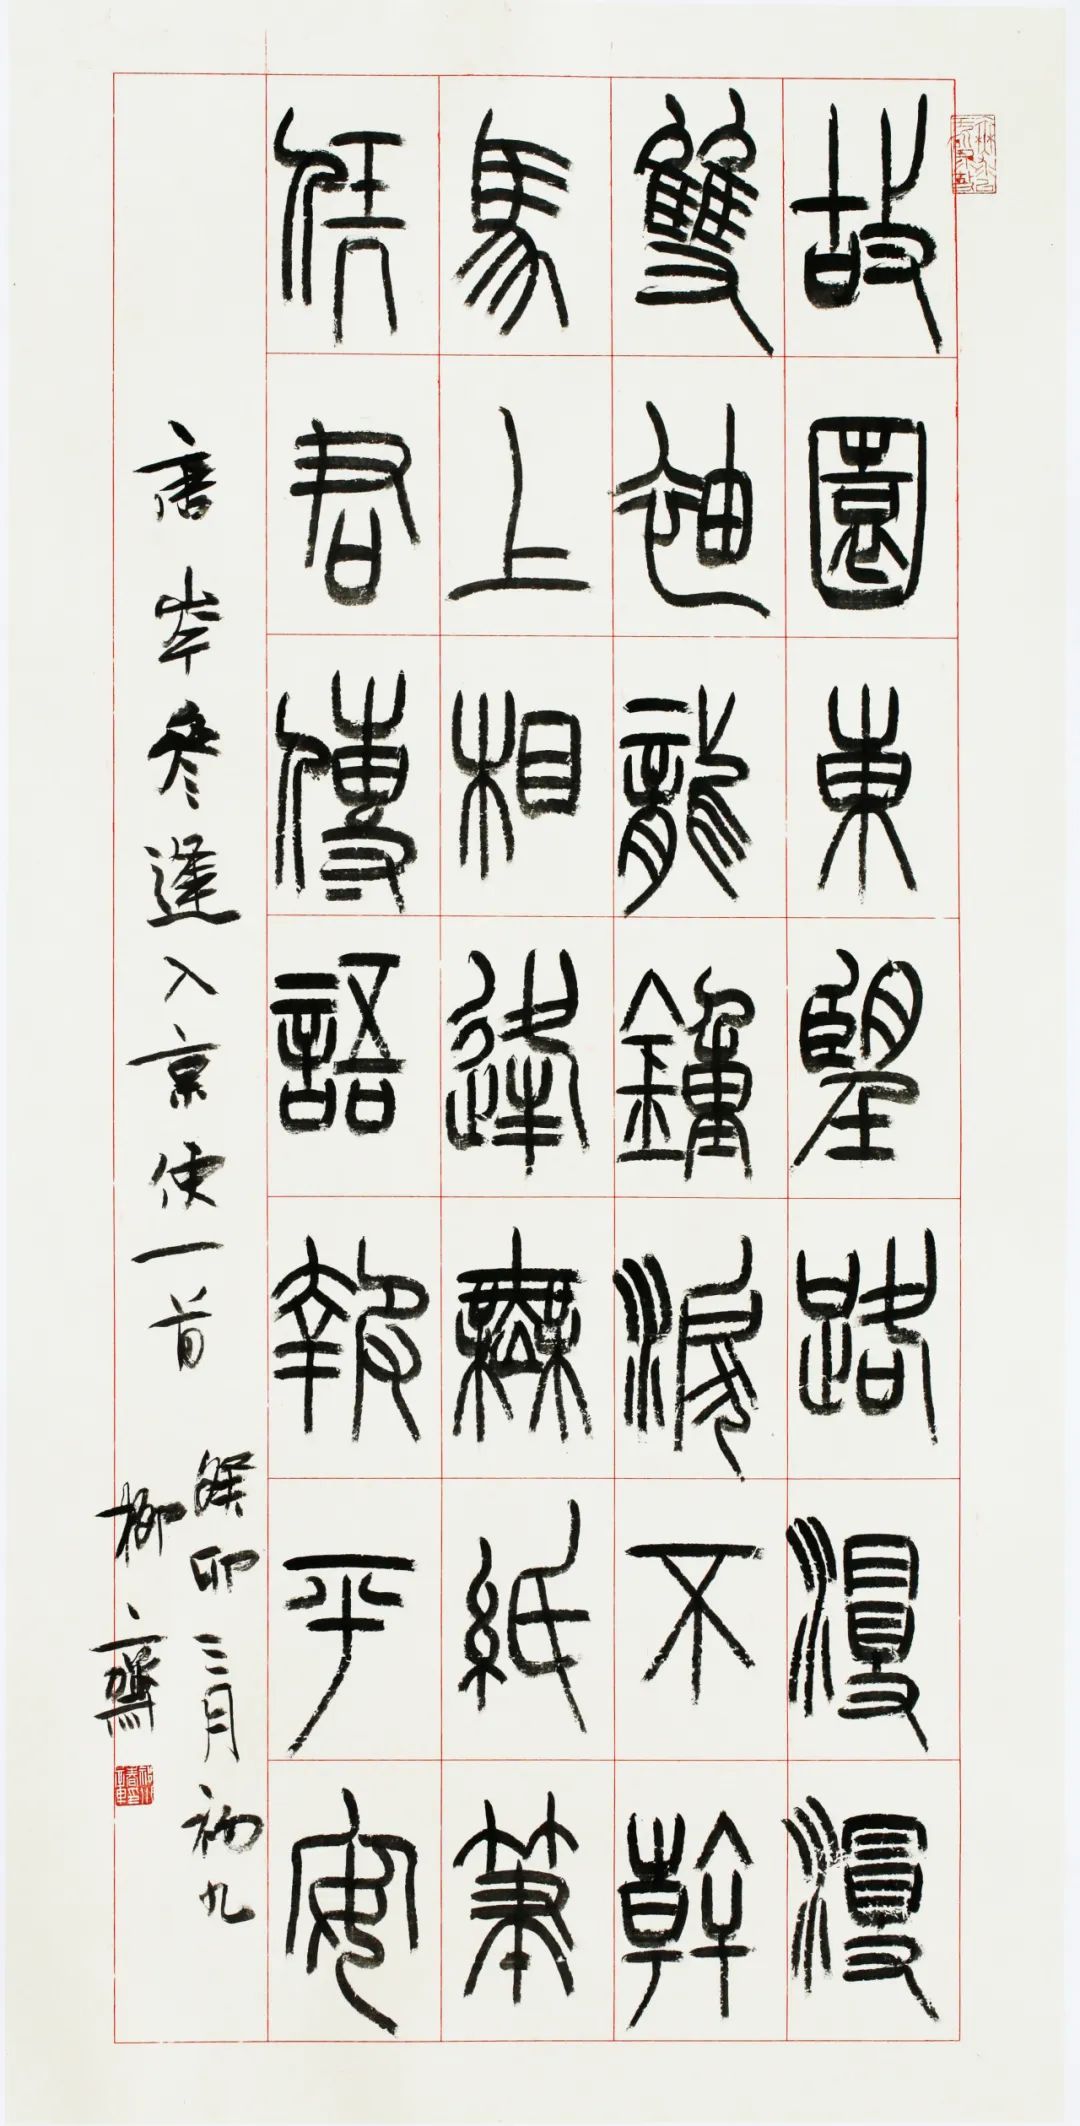 故園東望路漫漫
雙袖龍鍾淚不幹
馬上相逢無紙筆
凭君傳語報平安
唐岑參逢入京使一首
癸卯三月初九
柳